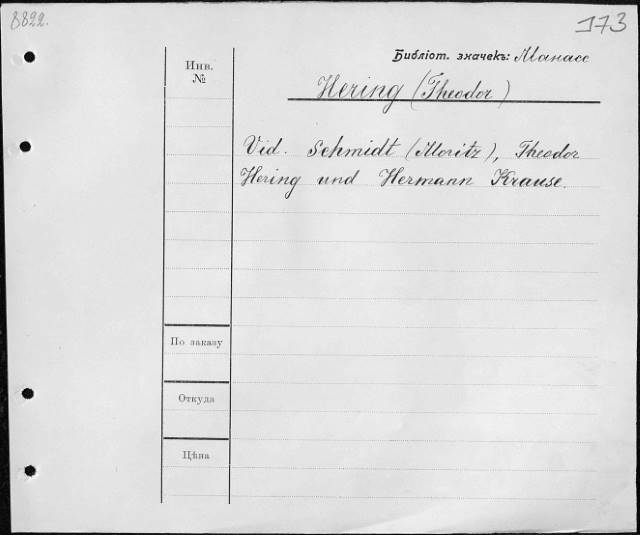 8822.
173
Библіот. значекъ: Манасс
Инв.
№
Hering (Theodor)
Vid. Schmidt (Moritz), Theodor
Hering und Hermann Krause.
По заказу
Откуда
Цѣна